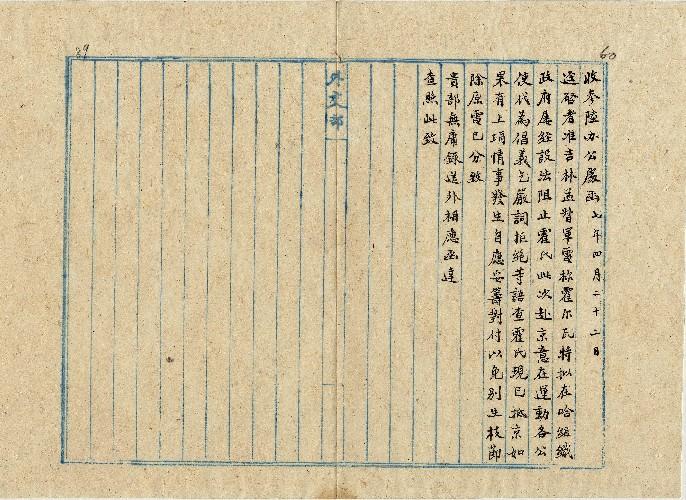 60
收參陸办公處函七年四月二十二日
逕啓者准吉林孟督軍電称霍尔瓦特拟在哈組織
政府屡經設法阻止霍氏此次赴京意在運動各公
使代為倡義乞嚴詞拒絶等語查霍氏現已抵京如
果有上項情事發生自應妥籌對付以免別生枝節
除原電已分致
貴部無庸録送外相應函達
查照此致
外交部